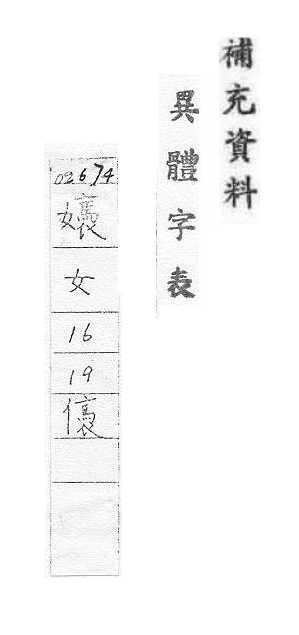 補充資料
異體字表
02674
㜵
女
16
19